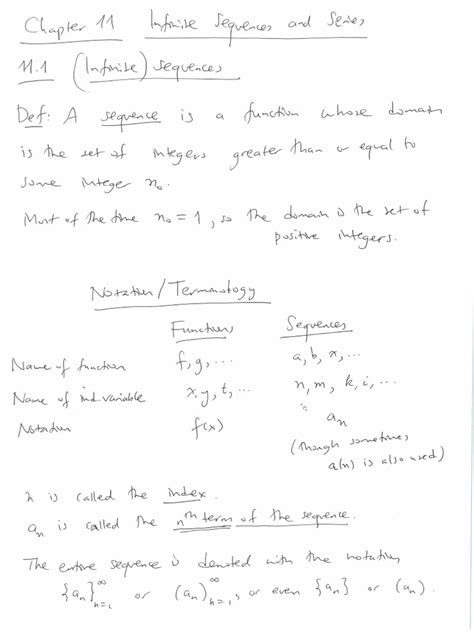 Chapter 11 Infinite Sequences and Series
11.1 (Infinite) Sequences
Def: A sequence is a function whose domain
is the set of integers greater than or equal to
some integer n₀.
Most of the time n₀ = 1, so the domain is the set of
positive integers.
Notation/Terminology
Functions Sequences
Name of function f, g, ... a, b, x, ...
Name of ind. variable x, y, t, ... n, m, k, i, ...
Notation f(x) aₙ
(Though sometimes
a(n) is also used)
n is called the index.
aₙ is called the nth term of the sequence.
The entire sequence is denoted with the notation
{aₙ}_{n=1}^∞ or (aₙ)_{n=1}^∞, or even {aₙ} or (aₙ).